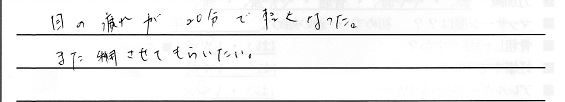 目の疲れが20分で軽くなった。
また利用させてもらいたい。